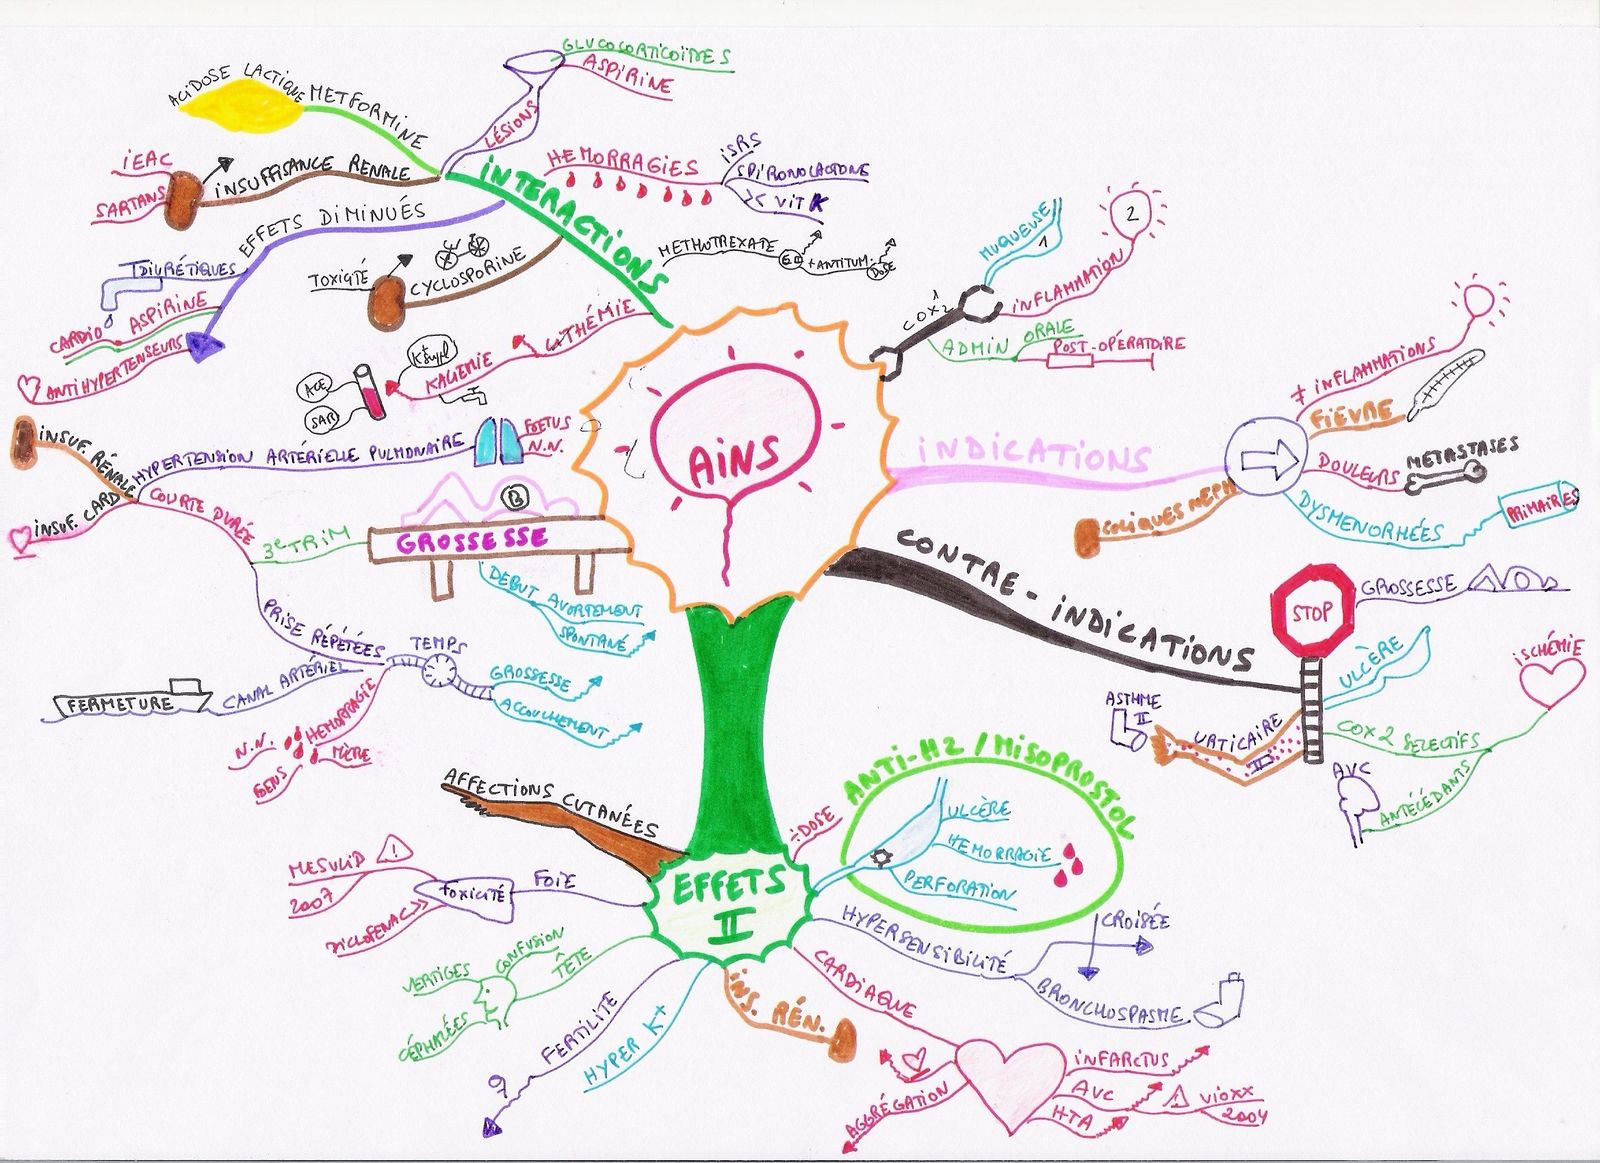 AINS
INTERACTIONS
ACIDOSE LACTIQUE
METFORMINE
LÉSIONS
GLUCOCORTICOÏDES
ASPIRINE
HEMORRAGIES
ISRS
SPIRONOLACTONE
VIT K
INSUFFISANCE RENALE
IEAC
SARTANS
EFFETS DIMINUÉS
DIURÉTIQUES
CARDIO
ASPIRINE
ANTIHYPERTENSEURS
CYCLOSPORINE
TOXICITÉ
METHOTREXATE
+ ANTITUM.
DOSE
LITHÉMIE
KALIEMIE
K+ suppl
ACE
SAR
COX 2
1
MUQUEUSE
1
INFLAMMATION
2
ADMIN ORALE
POST-OPÉRATOIRE
INDICATIONS
≠ INFLAMMATIONS
FIÈVRE
DOULEURS
METASTASES
DYSMENORHÉES
PRIMAIRES
COLIQUES NEPH
CONTRE-INDICATIONS
STOP
GROSSESSE
ULCÈRE
COX 2 SELECTIFS
ISCHÉMIE
ANTÉCÉDANTS
AVC
URTICAIRE
II
ASTHME
II
GROSSESSE
B
DEBUT AVORTEMENT
SPONTANÉ
3e TRIM
COURTE DURÉE
HYPERTENSION ARTÉRIELLE PULMONAIRE
FOETUS
N.N.
INSUF. RÉNALE
INSUF. CARD
PRISE RÉPÉTÉES
TEMPS
GROSSESSE
ACCOUCHEMENT
CANAL ARTÉRIEL
FERMETURE
HEMORRAGIE
N.N.
MÈRE
EFFETS
II
÷ DOSE
ANTI-H2 / MISOPROSTOL
ULCÈRE
HEMORRAGIE
PERFORATION
HYPERSENSIBILITÉ
CROISÉE
BRONCHOSPASME
CARDIAQUE
INFARCTUS
AVC
HTA
VIOXX
2004
AGGRÉGATION
INS. RÉN.
HYPER K+
FERTILITE
TÊTE
CONFUSION
VERTIGES
CÉPHALÉES
FOIE
TOXICITÉ
MESULID
!
2007
DICLOFENAC >>
AFFECTIONS CUTANÉES